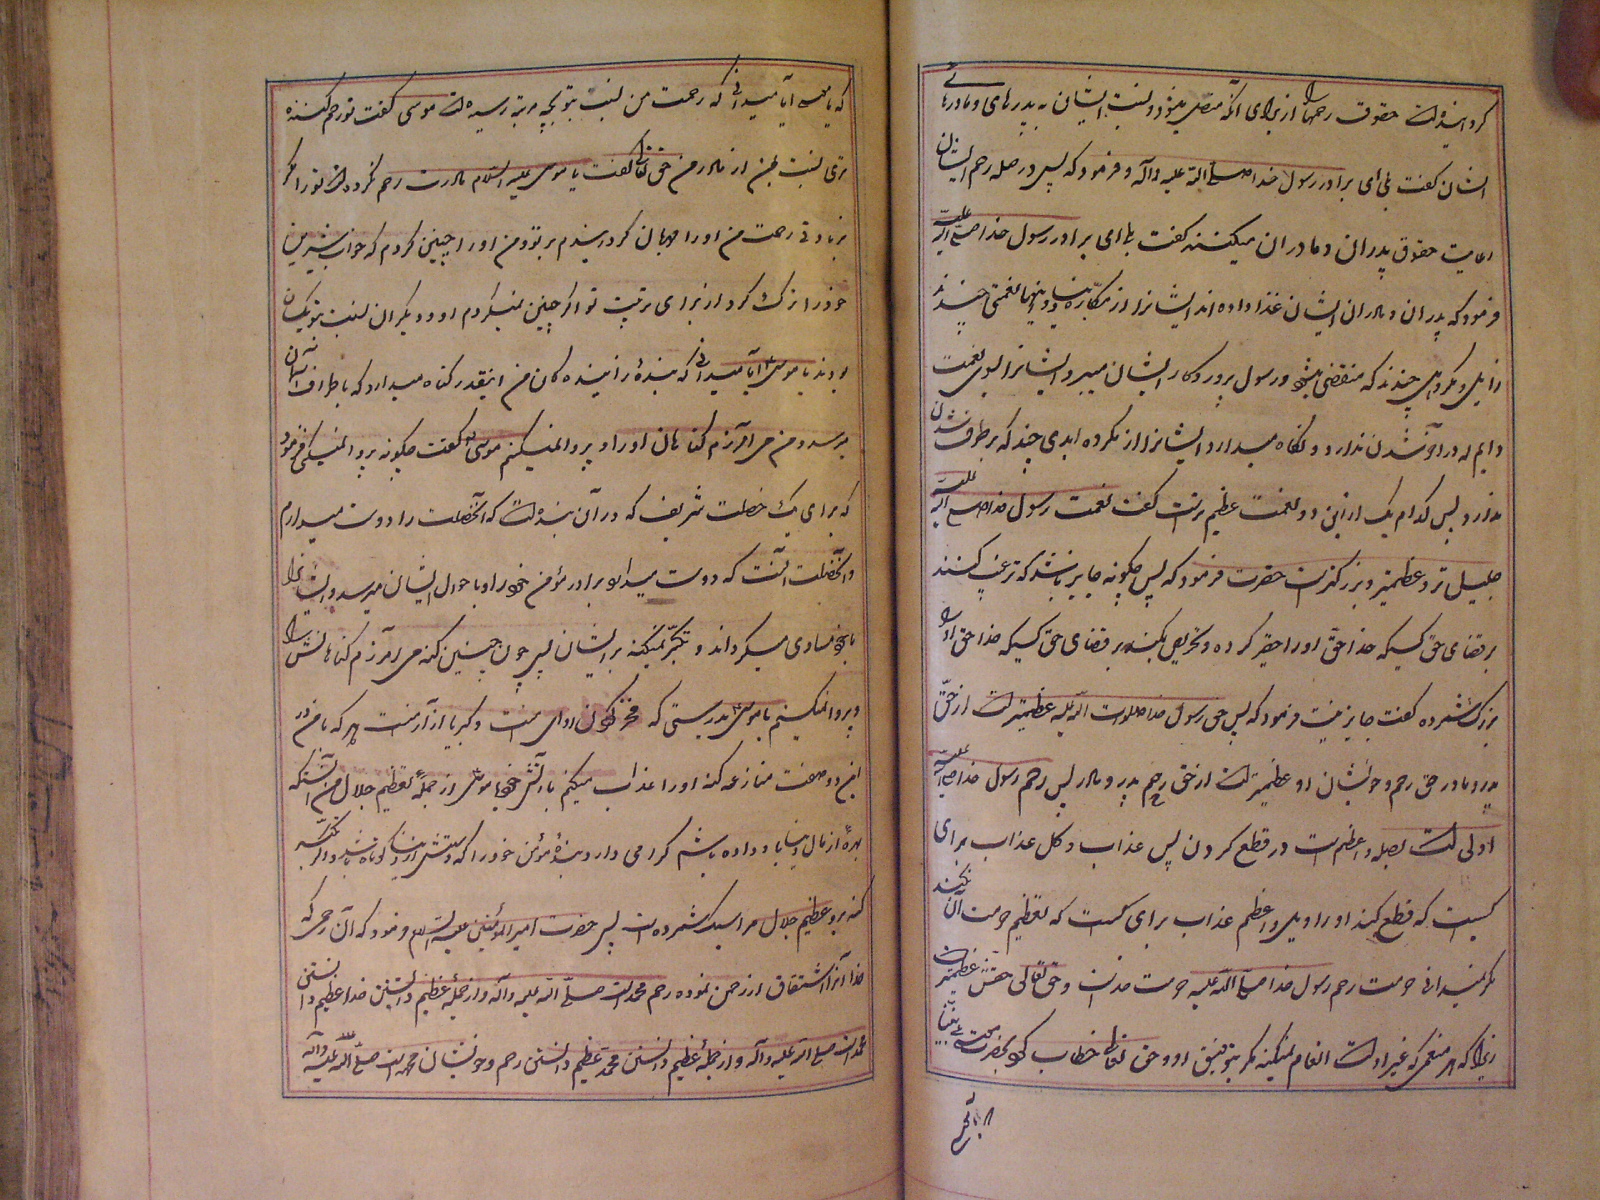 کرد بنده است حقوق رحمها را از برای آنکه متصل میشود و نسبت ایشان به پدرهای و مادرهای
ایشان گفت بلی ای برادر رسول خدا صلی الله علیه وآله و فرمود که پس در صله رحم ایشان
رعایت حقوق پدران و مادران میکنند گفت بلی ای برادر رسول خدا صلی الله علیه
فرمود که پدران و مادران ایشان غذا داده اند ایشانرا از مکاره دنیا و اینها نعمتی چندند
زایل و مکروهی چندند که منقضی میشود و رسول پروردگار ایشان میبرد ایشانرا بسوی نعمت
دایم که در او شدن ندارد و نگاه میدارد ایشانرا از مکروه ابدی چند که برطرف شدن
ندارد پس کدام یک از این دو نعمت عظیم تر است گفت نعمت رسول خدا صلی الله علیه
جلیل تر و عظیمتر و بزرگتر است حضرت فرمود که پس چگونه جایز باشد که ترغیب کنند
بر قضای حق کسیکه خدا حق او را حقیر کرده و تحریص نکند بر قضای حق کسیکه خدا حق او را
بزرگ شمرده گفت جایز نیست فرمود که پس حق رسول خدا صلوات الله علیه عظیمتر است از حق
پدر و مادر حق رحم و خویشان او عظیمتر است از حق رحم پدر و مادر پس رحم رسول خدا صلی الله علیه
اولی است بصله و اعظم است در قطع کردن پس عذاب و کل عذاب برای
کسیست که قطع کند او را و ویل و اعظم عذاب برای کسست که تعظیم حرمت آن نکند
مگر نمیدانی حرمت رحم رسول خدا صلی الله علیه حرمت خداست و حق تعالی حقش عظیمتر است
زیرا که هر منعمی که غیر اوست انعام نمیکند مگر بتوفیق او و حق تعالی خطاب کرد بحضرت موسی
که یا موسی آیا میدانی که رحمت من نسبت بتو بچه مرتبه رسیده است موسی گفت تو رحم کننده
تری نسبت بمن از مادر من حق تعالی گفت یا موسی علیه السلام مادرت رحم نکرده است تو را مگر
بزیادتی رحمت من او را مهربان گردانیدم بر تو و من او را چنین کردم که خواب شیرین
خود را ترک کرد از برای تربیت تو اگر چنین نمیکردم او و دیگران نسبت بتو یکسان
بودند یا موسی آیا میدانی که بندۀ را از بنده گان من اینقدر گناه میدارد که باطراف آسمان
میرسد و من می آمرزم گناهان او را و پروا نمیکنم موسی گفت چگونه پروا نمیکنی فرمود
که برای یک خصلت شریف که در آن بنده است که آنخصلت را دوست میدارم
و آنخصلت آنست که دوست میدارد برادر مؤمن خود را و باحوال ایشان میرسد و ایشانرا
با خود مساوی میگرداند و تکبر نمیکند بر ایشان پس چون چنین کند می آمرزم گناهانش را
و پروا نمیکنم یا موسی بدرستی که فخر کردن ردای منست و کبریا ازار منست هر که با من در
این دو صفت منازعه کند او را عذاب میکنم بآتش خود یا موسی از جمله تعظیم جلال من آنستکه
بهرۀ از مال دنیا باو داده باشم گرامی دارد بندۀ مؤمن خود را که دستش از دنیا کوتاه شد و اگر تکبر
کند بر او عظیم جلال مرا سبک شمرده است پس حضرت امیرالمؤمنین علیه السلام فرمود که آن رحمی که
خدا آنرا اشتقاق از رحمن نموده رحم محمد است صلی الله علیه وآله و از جمله عظیم دانستن خدا عظیم دانستن
محمد است صلی الله علیه وآله و از جملۀ عظیم دانستن محمد عظیم دانستن رحم و خویشان محمد است صلی الله علیه وآله